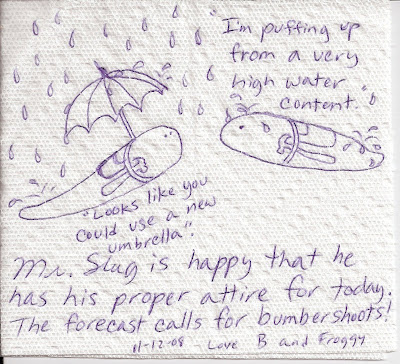 "I'm puffing up
from a very
high water
content."
"Looks like you
could use a new
umbrella".
Mr. Slug is happy that he
has his proper attire for today.
The forecast calls for bumbershoots!
11-12-08 Love B and Froggy